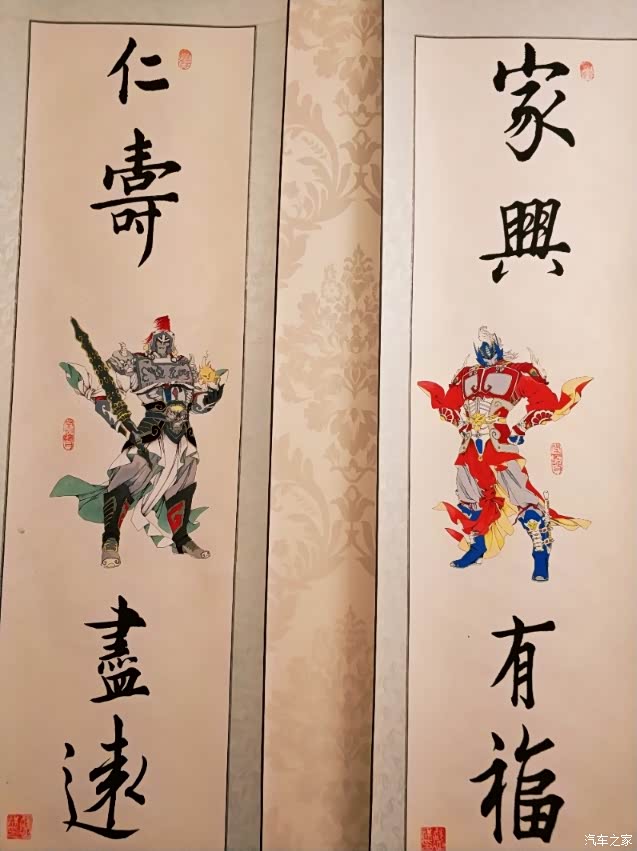 家興有福
仁壽盡遠
汽车之家